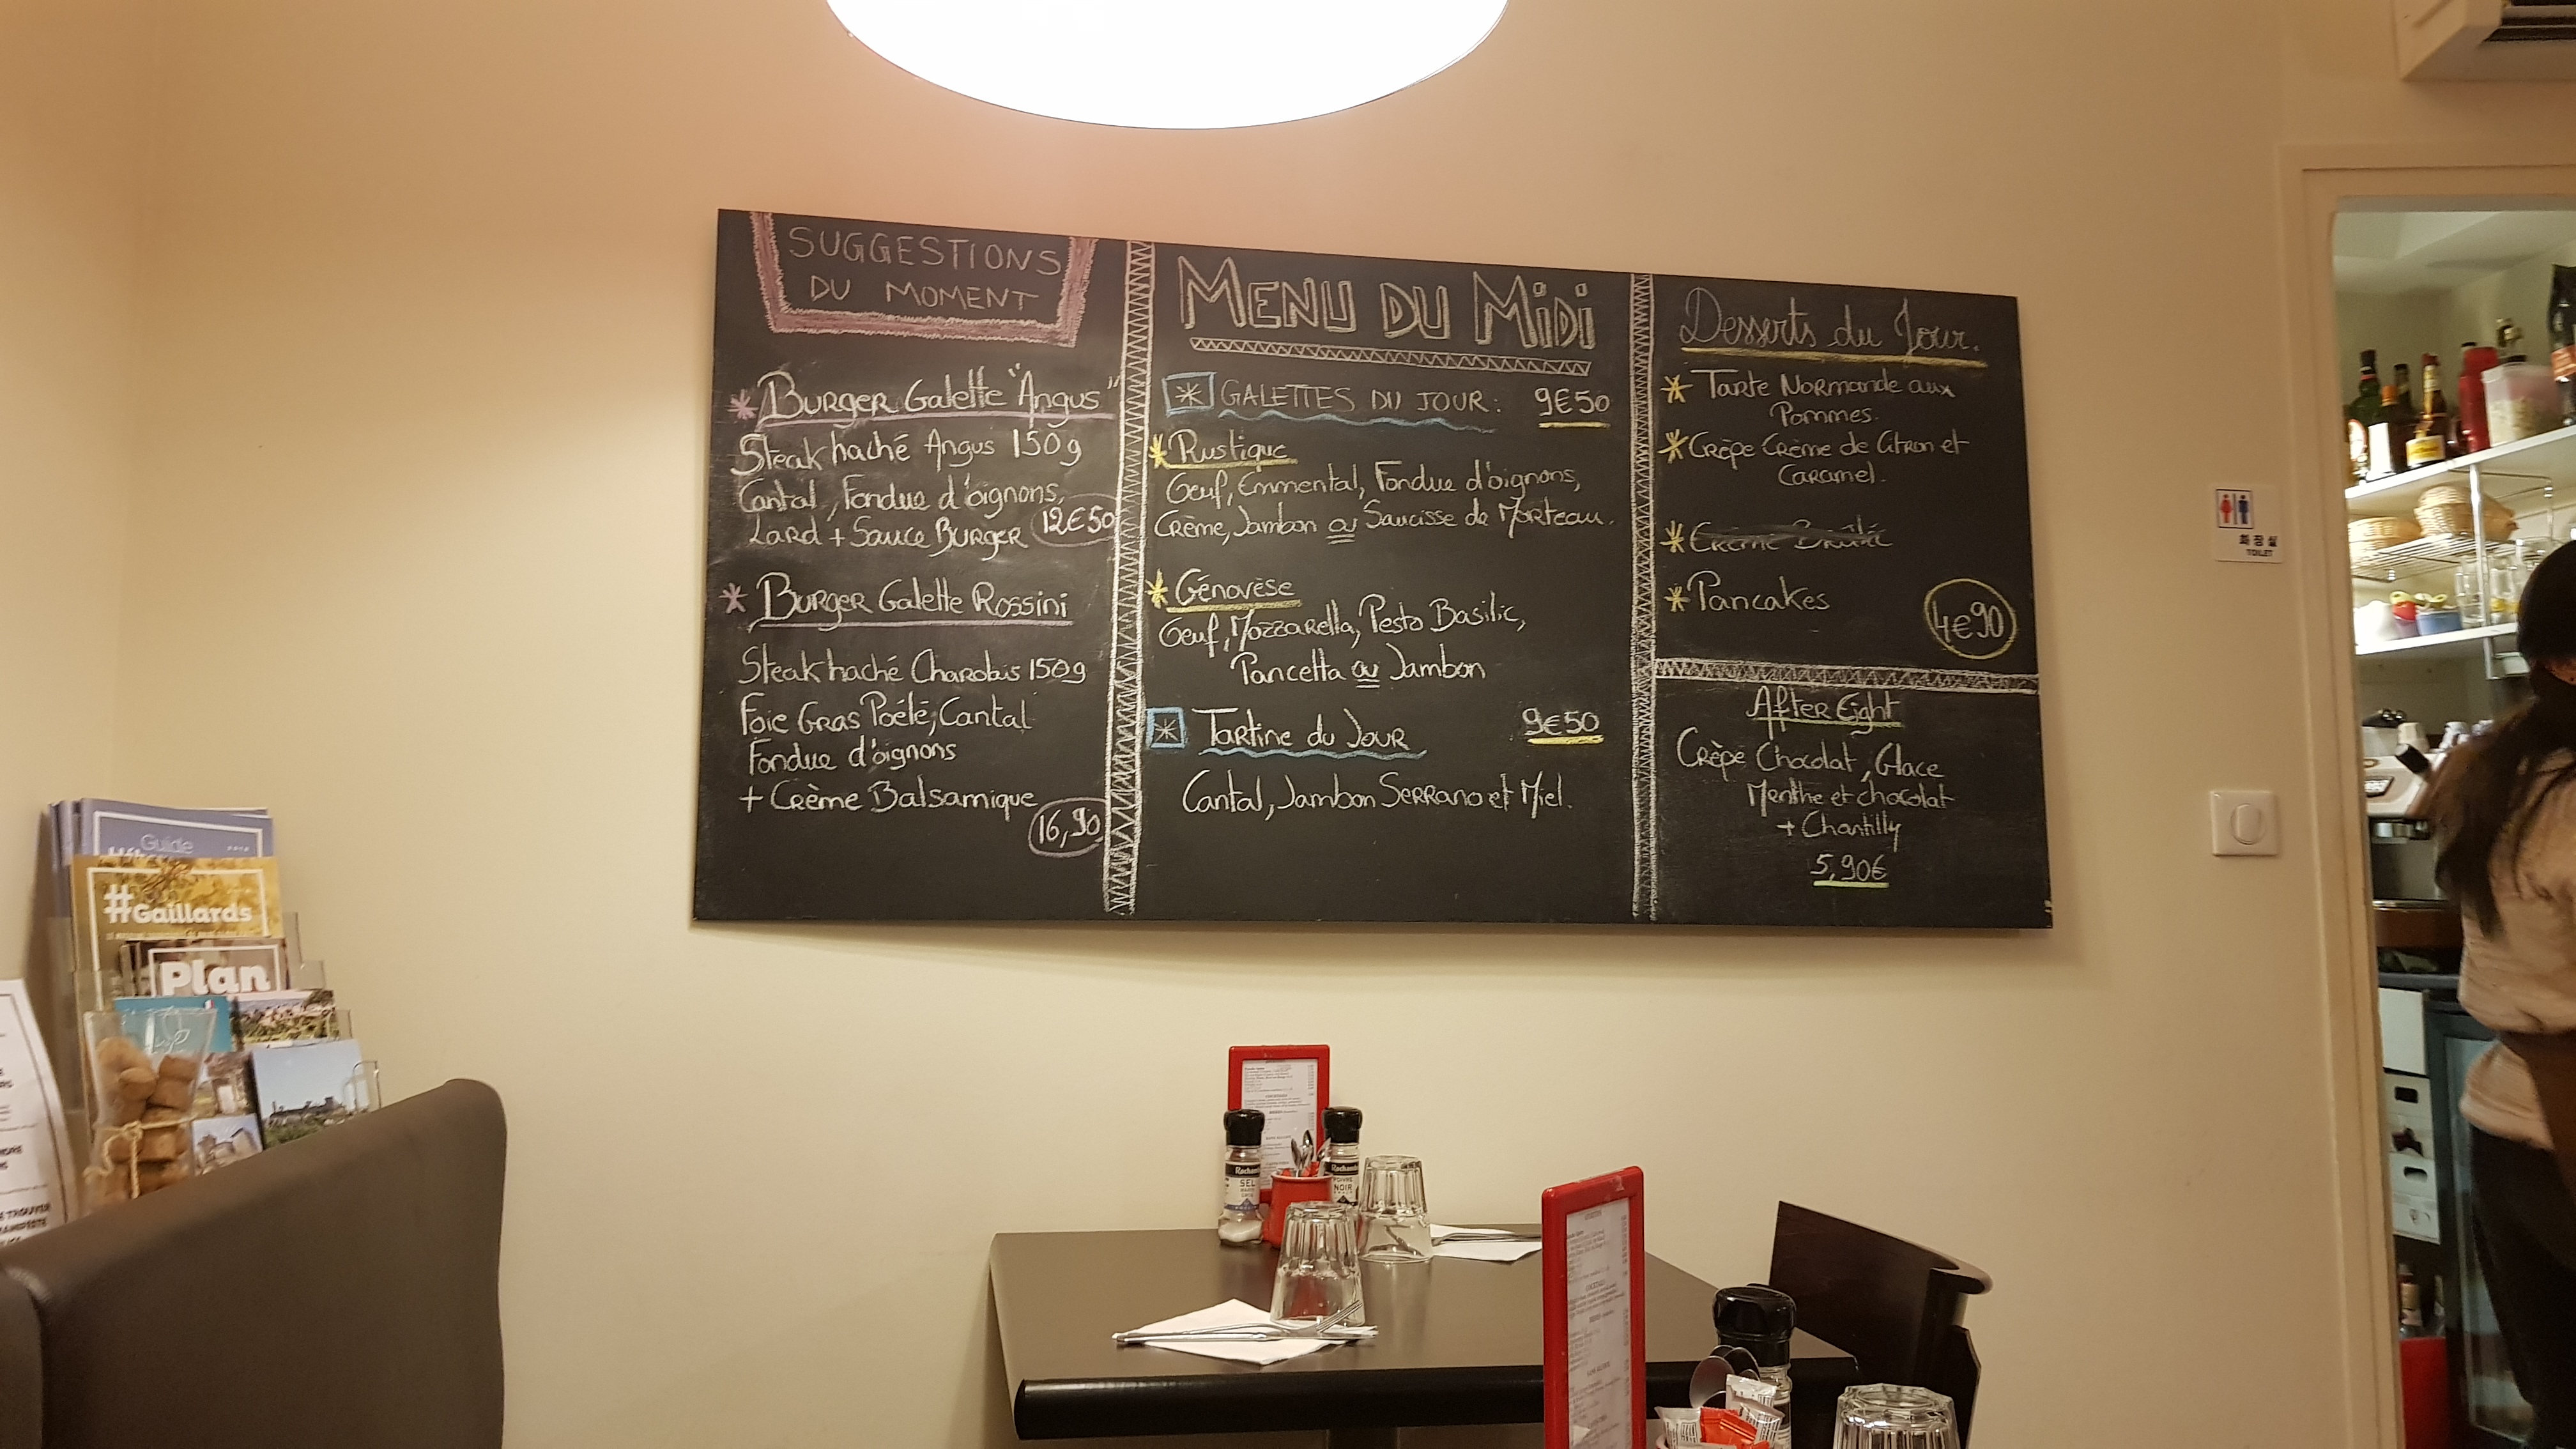 SUGGESTIONS
DU MOMENT
* Burger Galette "Angus"
Steak haché Angus 150g
Cantal, Fondue d'oignons,
Lard + Sauce Burger 12€50
* Burger Galette Rossini
Steak haché Charolais 150g
Foie Gras Poélé, Cantal
Fondue d'oignons
+ Crème Balsamique
16,90
MENU DU MiDi
* GALETTES DU JOUR: 9€50
* Rustique
Oeuf, Emmental, Fondue d'oignons,
Crème, Jambon ou Saucisse de Morteau.
* Génovèse
Oeuf, Mozzarella, Pesto Basilic,
Pancetta ou Jambon
* Tartine du Jour 9€50
Cantal, Jambon Serrano et Miel.
Desserts du Jour.
* Tarte Normande aux
Pommes.
* Crêpe Crème de Citron et
Caramel.
* Crème Brulée
* Pancakes
4€90
After Eight
Crêpe Chocolat, Glace
Menthe et chocolat
+ Chantilly
5,90€
화장실
TOILET
Guide
#Gaillards
Plan
SEL
POIVRE
NOIR